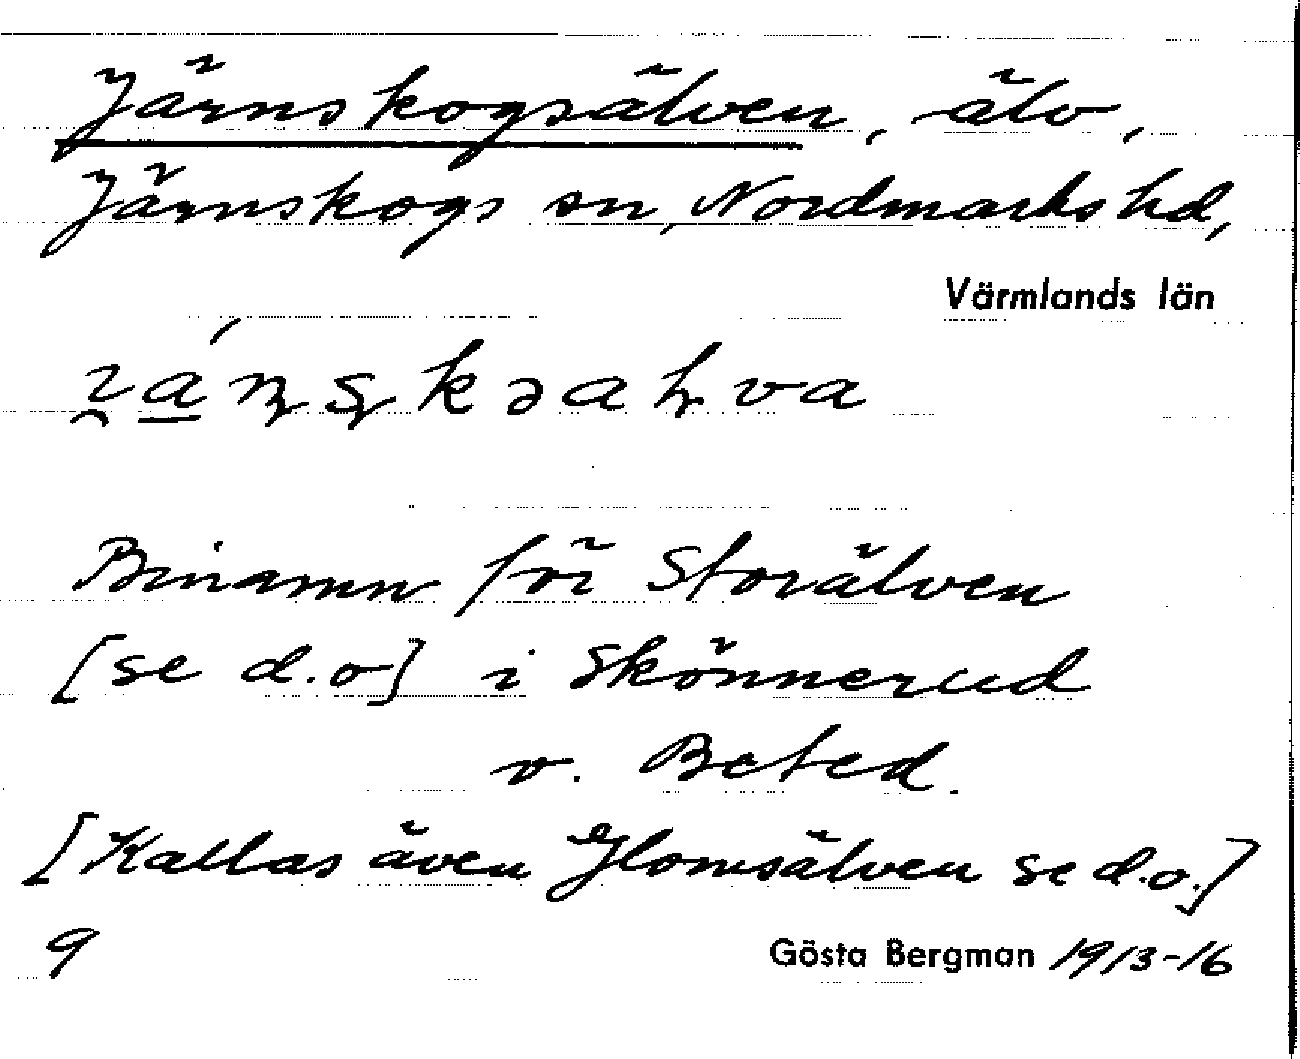 Järnskogsälven, älv,
Järnskogs sn, Nordmarks hd,
Värmlands län
Binamn för Storälven
[se d.o] i Skönnerud
o. Beted.
[Kallas även Glomsälven se d.o.]
9
Gösta Bergman 1913-16